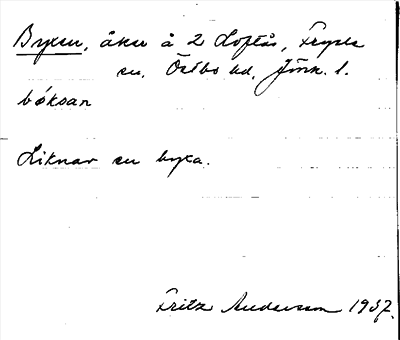 Byxen, åker å 2 Loftås, Fryele
sn. Östbo hd. Jönk. l.
bóksan
Liknar en byxa.
Fritz Andersson 1937.